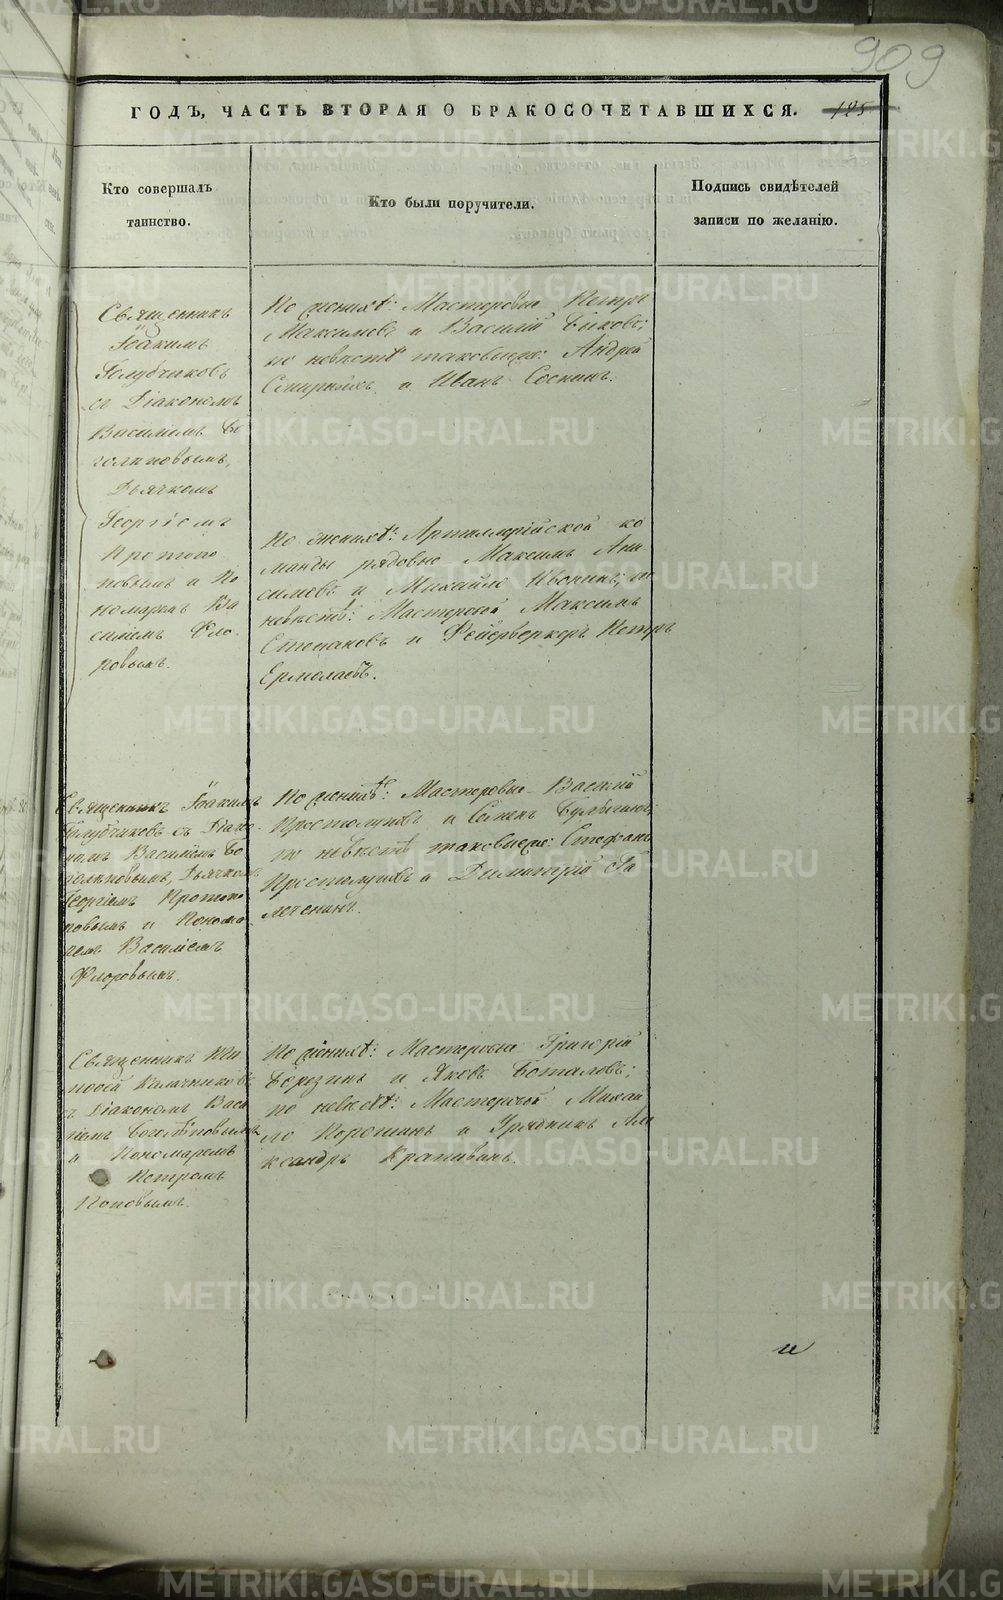 909
ГОДЪ, ЧАСТЬ ВТОРАЯ О БРАКОСОЧЕТАВШИХСЯ. 125
Кто совершалъ
таинство.
Кто были поручители.
Подпись свидѣтелей
записи по желанію.
Священникъ
Іоакимъ
Голубчиковъ
съ Діакономъ
Василіемъ Бо
голѣповымъ,
Дьячкомъ
Георгіемъ
Протопо
повымъ и По
номаремъ Ва
силіемъ Фло
ровымъ.
По женихѣ: Мастеровые Петръ
Максимовъ и Василій Быковъ;
по невѣстѣ таковыеже: Андрей
Смирныхъ и Иванъ Соснинъ.
По женихѣ: Артиллерійской ко
манды рядовые Максимъ Ани
симовъ и Михайло Ивонинъ; по
невѣстѣ: Мастеровой Максимъ
Степановъ и Фейерверкеръ Петръ
Ермолаевъ.
Священникъ Іоакимъ
Голубчиковъ съ Діако
номъ Василіемъ Бо
голѣповымъ, Дьячкомъ
Георгіемъ Протопо
повымъ и Понома
ремъ Василіемъ
Флоровымъ.
По женихѣ: Мастеровые Василій
и Семенъ
по невѣстѣ таковыеже: Стефанъ
и Димитрій Га

Священникъ Ти
моѳей Калачниковъ
съ Діакономъ Васи
ліемъ Боголѣповымъ
и Пономаремъ
Петромъ
Поповымъ.
По женихѣ: Мастеровые Григорій
Березинъ и Яковъ Боталовъ;
по невѣстѣ: Мастеровой Михай
ло Коротинъ и Урядникъ Але
ксандръ Крапивинъ.
и
METRIKI.GASO-URAL.RU